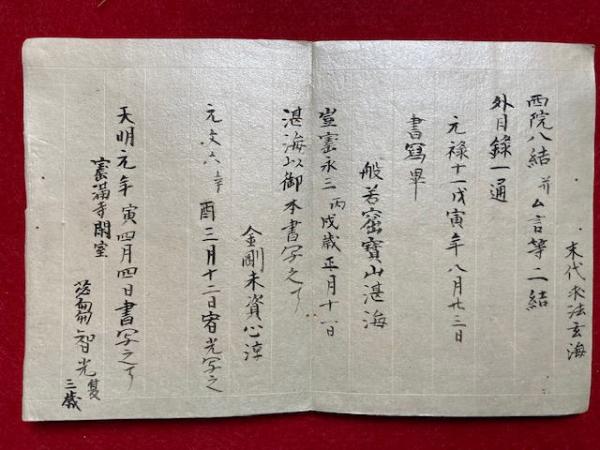 末代求法玄海
西院八結并ム言等二結
外目録一通
元禄十一戊寅年八月廿三日
書寫畢
般若窟寶山湛海
寶永三丙戌歳正月十一日
湛海以御本書写之了
金剛末資心淳
元文六辛酉三月十二日宥光写之
天明元年寅四月四日書写之了
密満寺開室
苾芻智光
三歳